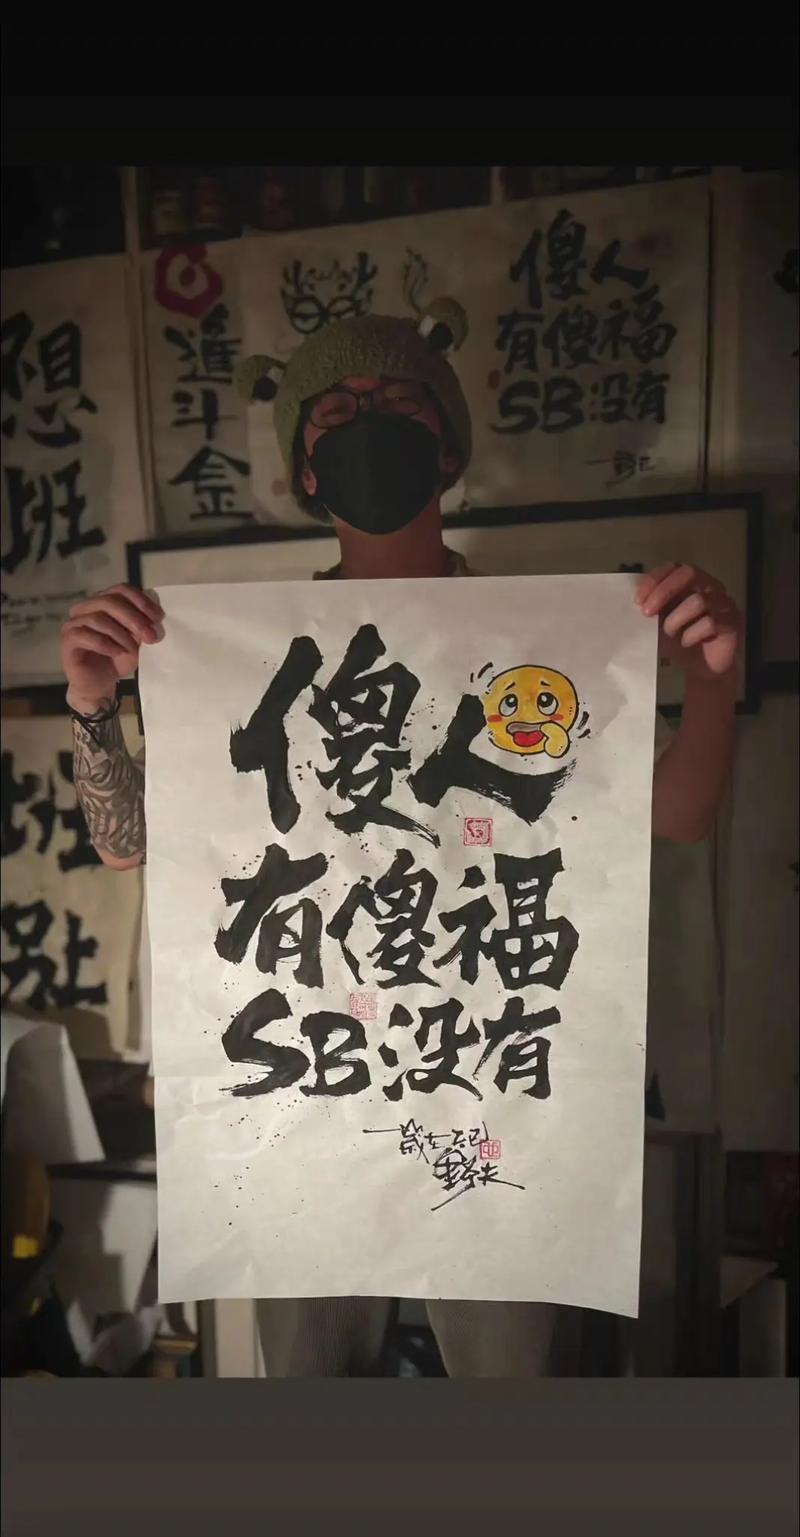 傻人
有傻福
SB没有
想
班
進
斗
金
傻人
有傻福
SB没有
班